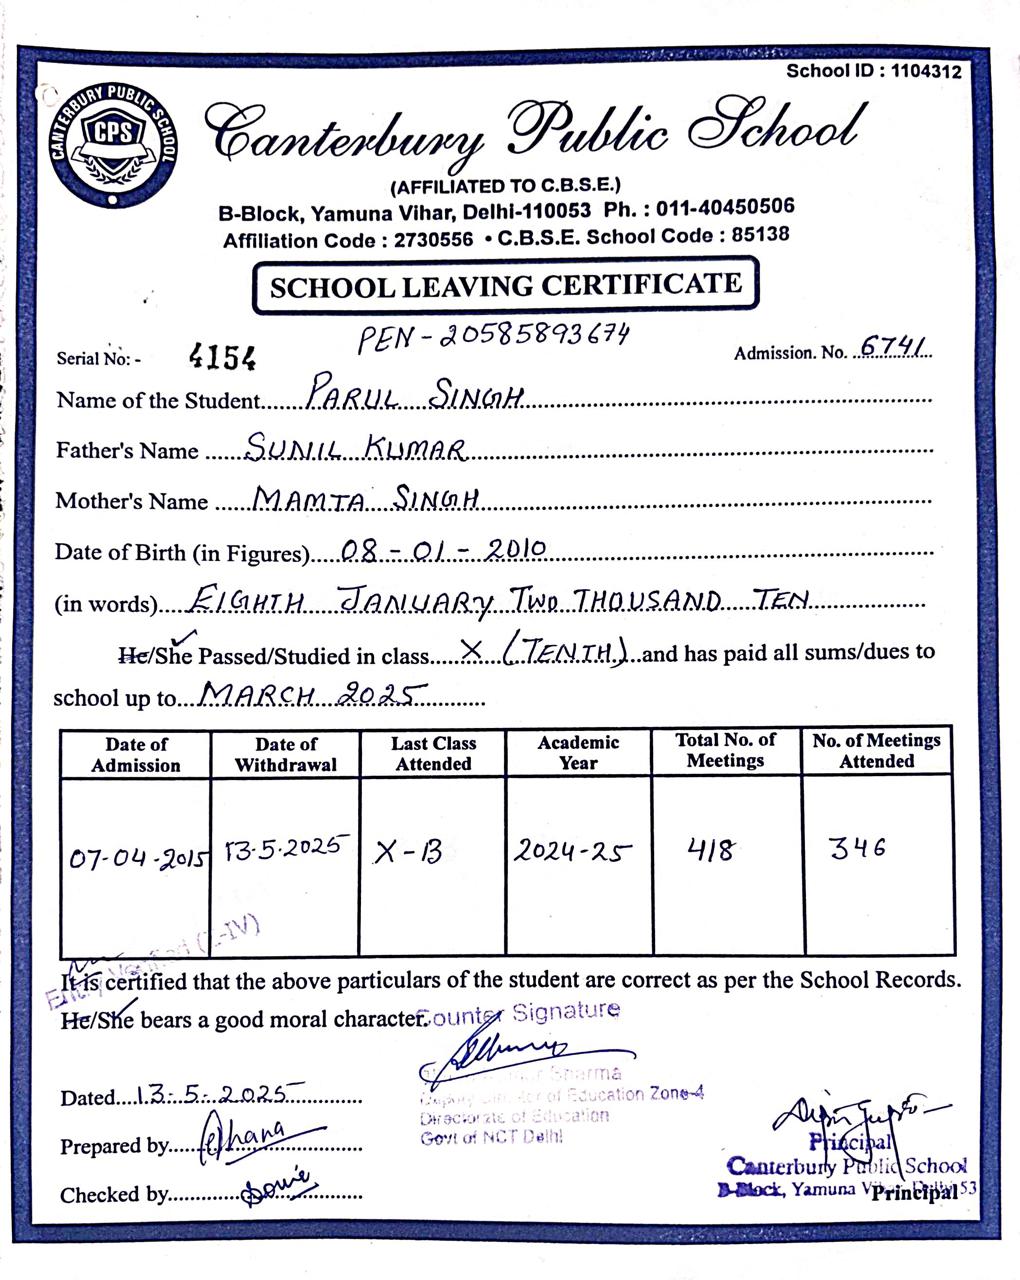 School ID : 1104312
CANTERBURY PUBLIC SCHOOL
CPS
Canterbury Public School
(AFFILIATED TO C.B.S.E.)
B-Block, Yamuna Vihar, Delhi-110053 Ph. : 011-40450506
Affiliation Code : 2730556 • C.B.S.E. School Code : 85138
SCHOOL LEAVING CERTIFICATE
PEN - 20585893674
Serial No: - 4154 Admission. No. 6741
Name of the Student PARUL SINGH
Father's Name SUNIL KUMAR
Mother's Name MAMTA SINGH
Date of Birth (in Figures) 08 - 01 - 2010
(in words) EIGHTH JANUARY TWO THOUSAND TEN
He/She Passed/Studied in class X (TENTH) and has paid all sums/dues to
school up to MARCH 2025
Date of Admission Date of Withdrawal Last Class Attended Academic Year Total No. of Meetings No. of Meetings Attended
07-04-2015 13-5-2025 X-B 2024-25 418 346
Entry Verified (I-IV)
It is certified that the above particulars of the student are correct as per the School Records.
He/She bears a good moral character.
Counter Signature
Sharma
Deputy Director of Education Zone-4
Directorate of Education
Govt of NCT Delhi
Dated 13.5.2025
Prepared by
Checked by
Principal
Canterbury Public School
B-Block, Yamuna Vihar, Delhi-53
Principal